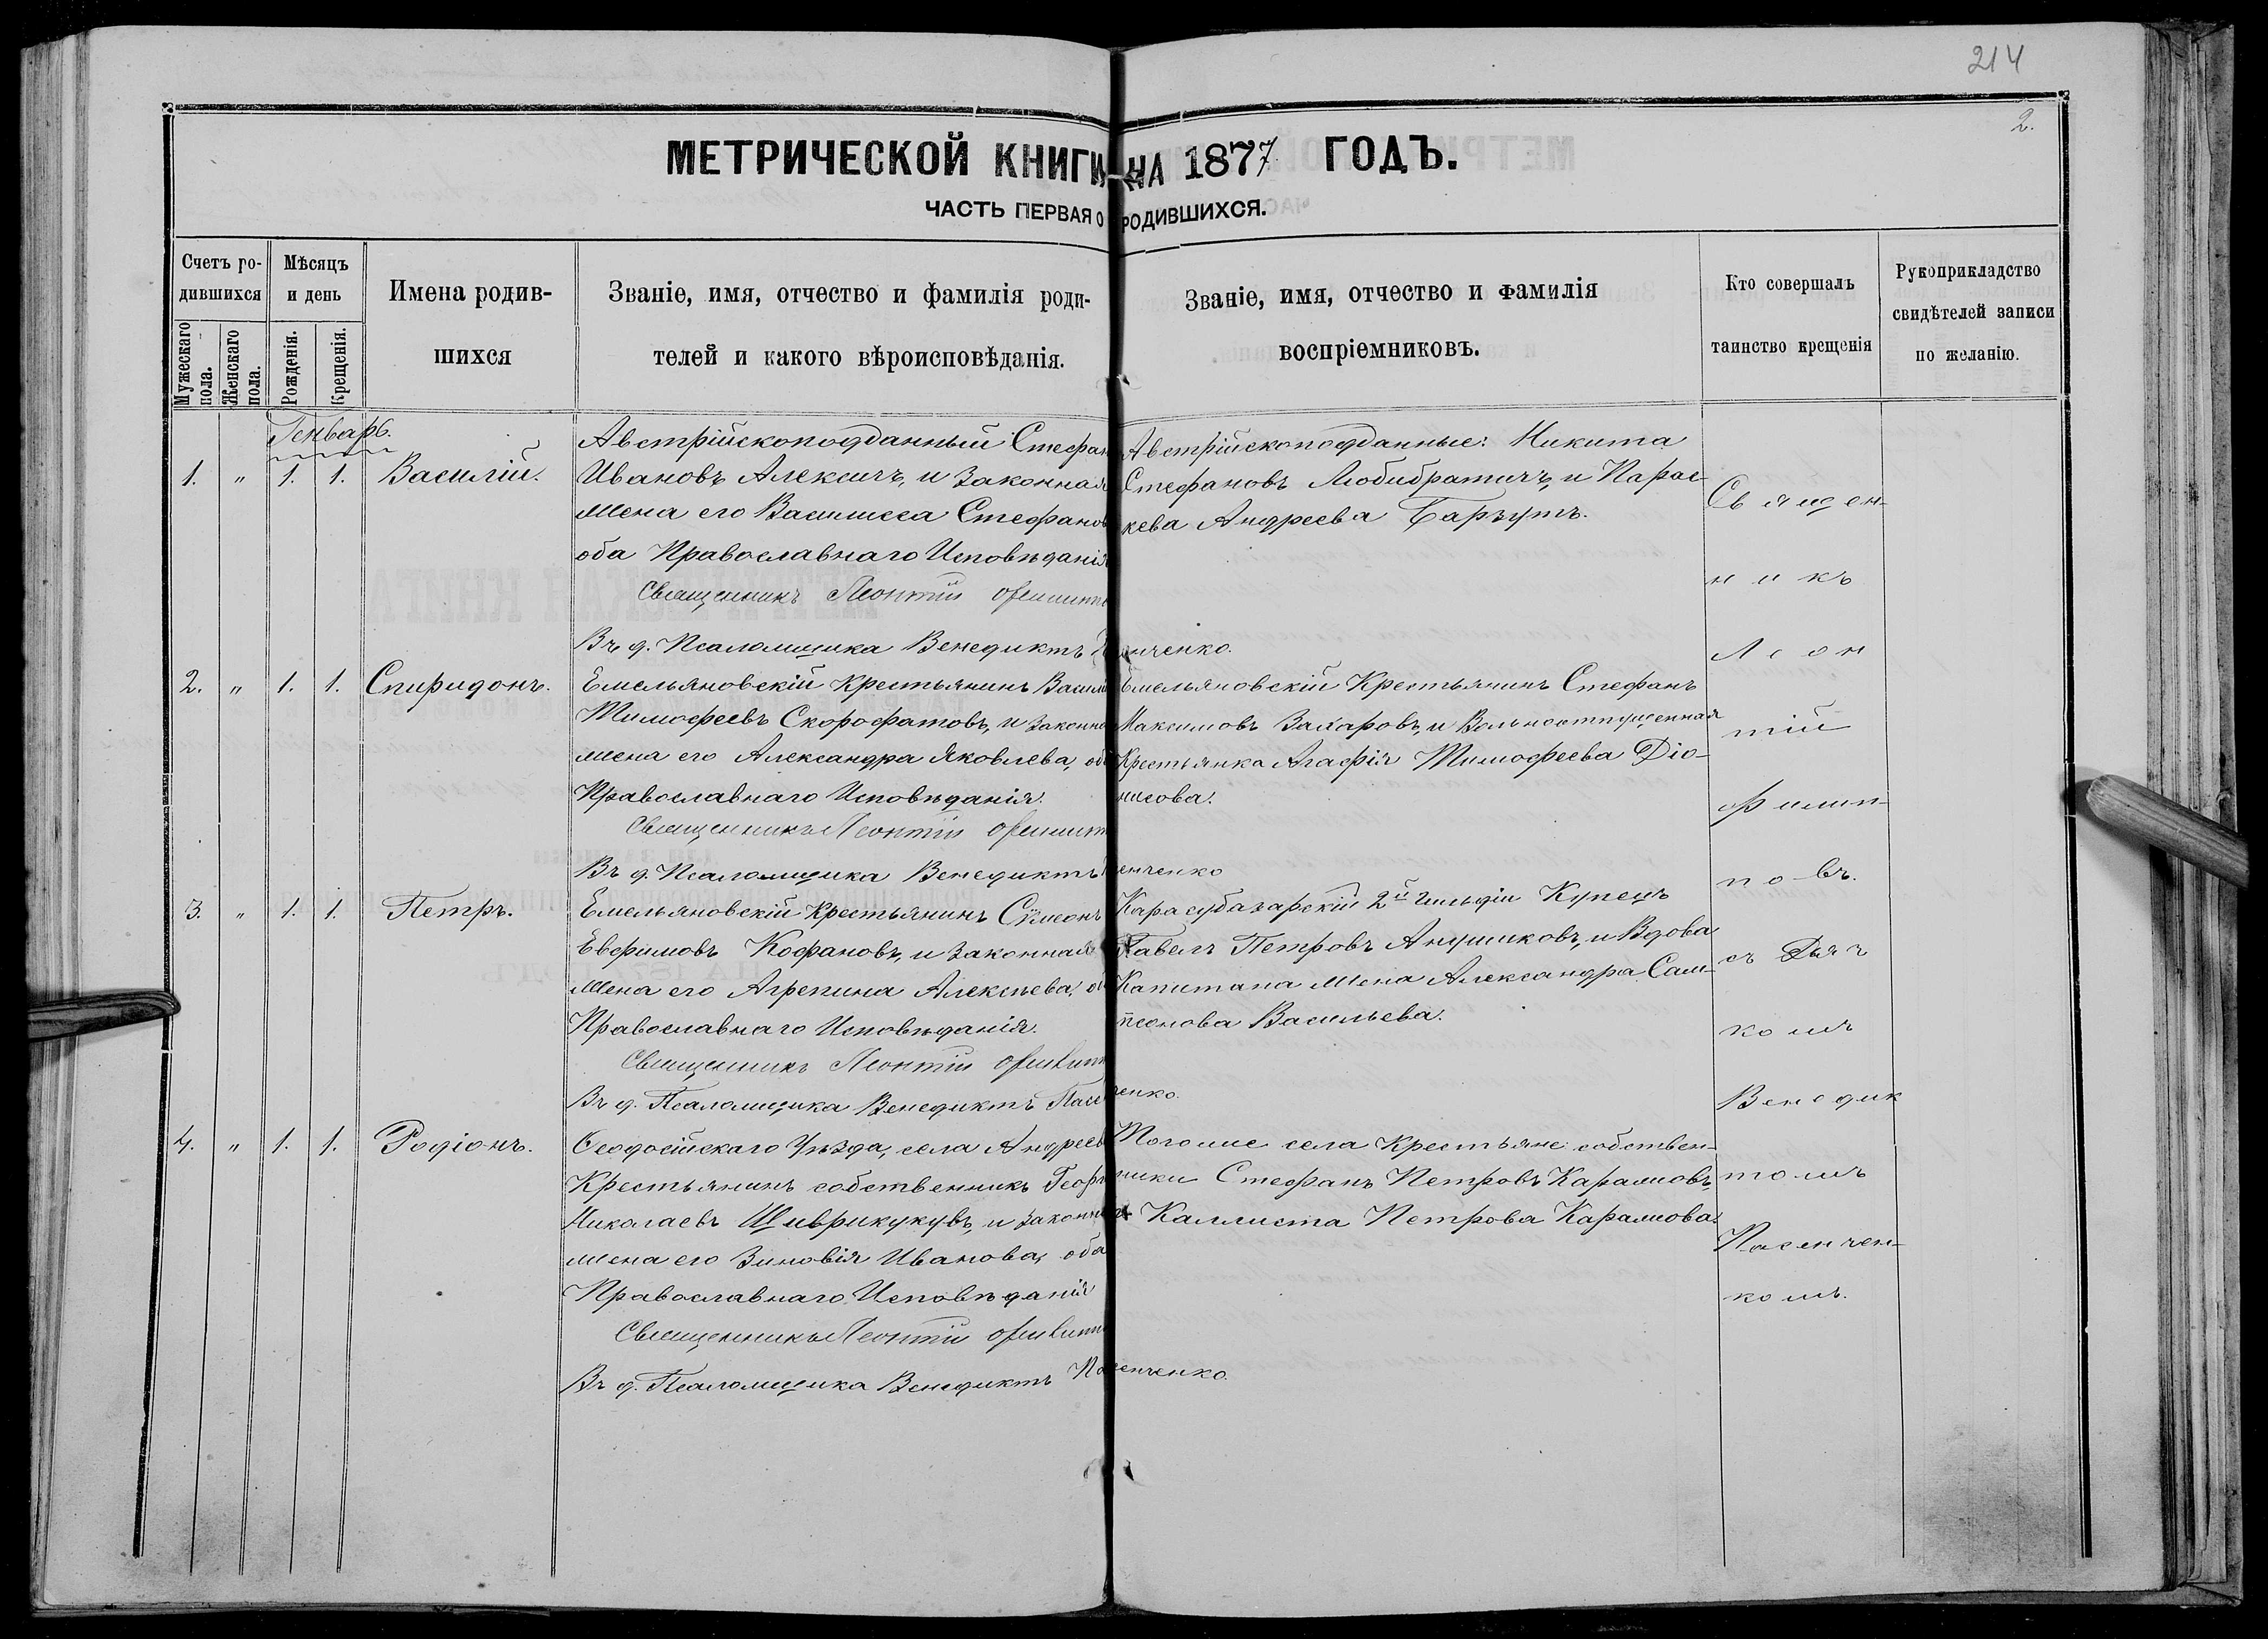 214
2.
МЕТРИЧЕСКОЙ КНИГИ НА 1877 ГОДЪ.
ЧАСТЬ ПЕРВАЯ О РОДИВШИХСЯ.
Счетъ ро-
дившихся
Мужескаго пола.
Женскаго пола.
Мѣсяцъ
и день
Рожденія.
Крещенія.
Имена родив-
шихся
Званіе, имя, отчество и фамилія роди-
телей и какого вѣроисповѣданія.
Званіе, имя, отчество и фамилія
воспріемниковъ.
Кто совершалъ
таинство крещенія
Рукоприкладство
свидѣтелей записи
по желанію.
Генварь.
1. " 1. 1. Василій.
Австрійскоподданный Стефан
Ивановъ Алексичъ, и законная
жена его Василисса Стефанов
оба Православнаго Исповѣданія
Священникъ Леонтій
Въ д. Псаломщика Венедиктъ
Австрійскоподданные: Никита
Стефановъ Любибратичъ, и Парас-
кева Андреева Барзутъ.
нченко.
2. " 1. 1. Спиридонъ.
Емельяновскій Крестьянинъ Васил
Тимофеевъ Скорофатовъ, и законна
жена его Александра Яковлева, об
Православнаго Исповѣданія.
Священникъ Леонтій
Въ д. Псаломщика Венедиктъ
Емельяновскій Крестьянинъ Стефанъ
Максимовъ Захаровъ, и Вольноотпущенная
Крестьянка Агафія Тимофеева Діо-
нисова.
енченко
3. " 1. 1. Петръ.
Емельяновскій Крестьянинъ Сѵмеонъ
Евфимовъ Кофановъ, и законная
жена его Агрепина Алексѣева, о
Православнаго Исповѣданія.
Священникъ Леонтій
Въ д. Псаломщика Венедиктъ Пасе
Карасубазарскій 2й гильдіи Купецъ
Павелъ Петровъ Анушиковъ, и Вдова
Капитана жена Александра Сам-
псонова Васильева.
ченко.
4. " 1. 1. Родіонъ.
Ѳеодосійскаго Уѣзда, села Андреев
Крестьянинъ собственникъ Георг
Николаевъ Шиврикукувъ, и законна
жена его Зиновія Иванова, оба
Православнаго Исповѣданія
Священникъ Леонтій
Въ д. Псаломщика Венедиктъ Па
Тогоже села Крестьяне собствен-
ники Стефанъ Петровъ Карамовъ,
и Каллиста Петрова Карамова.
сенченко.
Священ-
никъ
Леон
тій
Филип-
повъ.
съ Дьяч
комъ
Венедик
томъ
Пасенчен-
комъ.